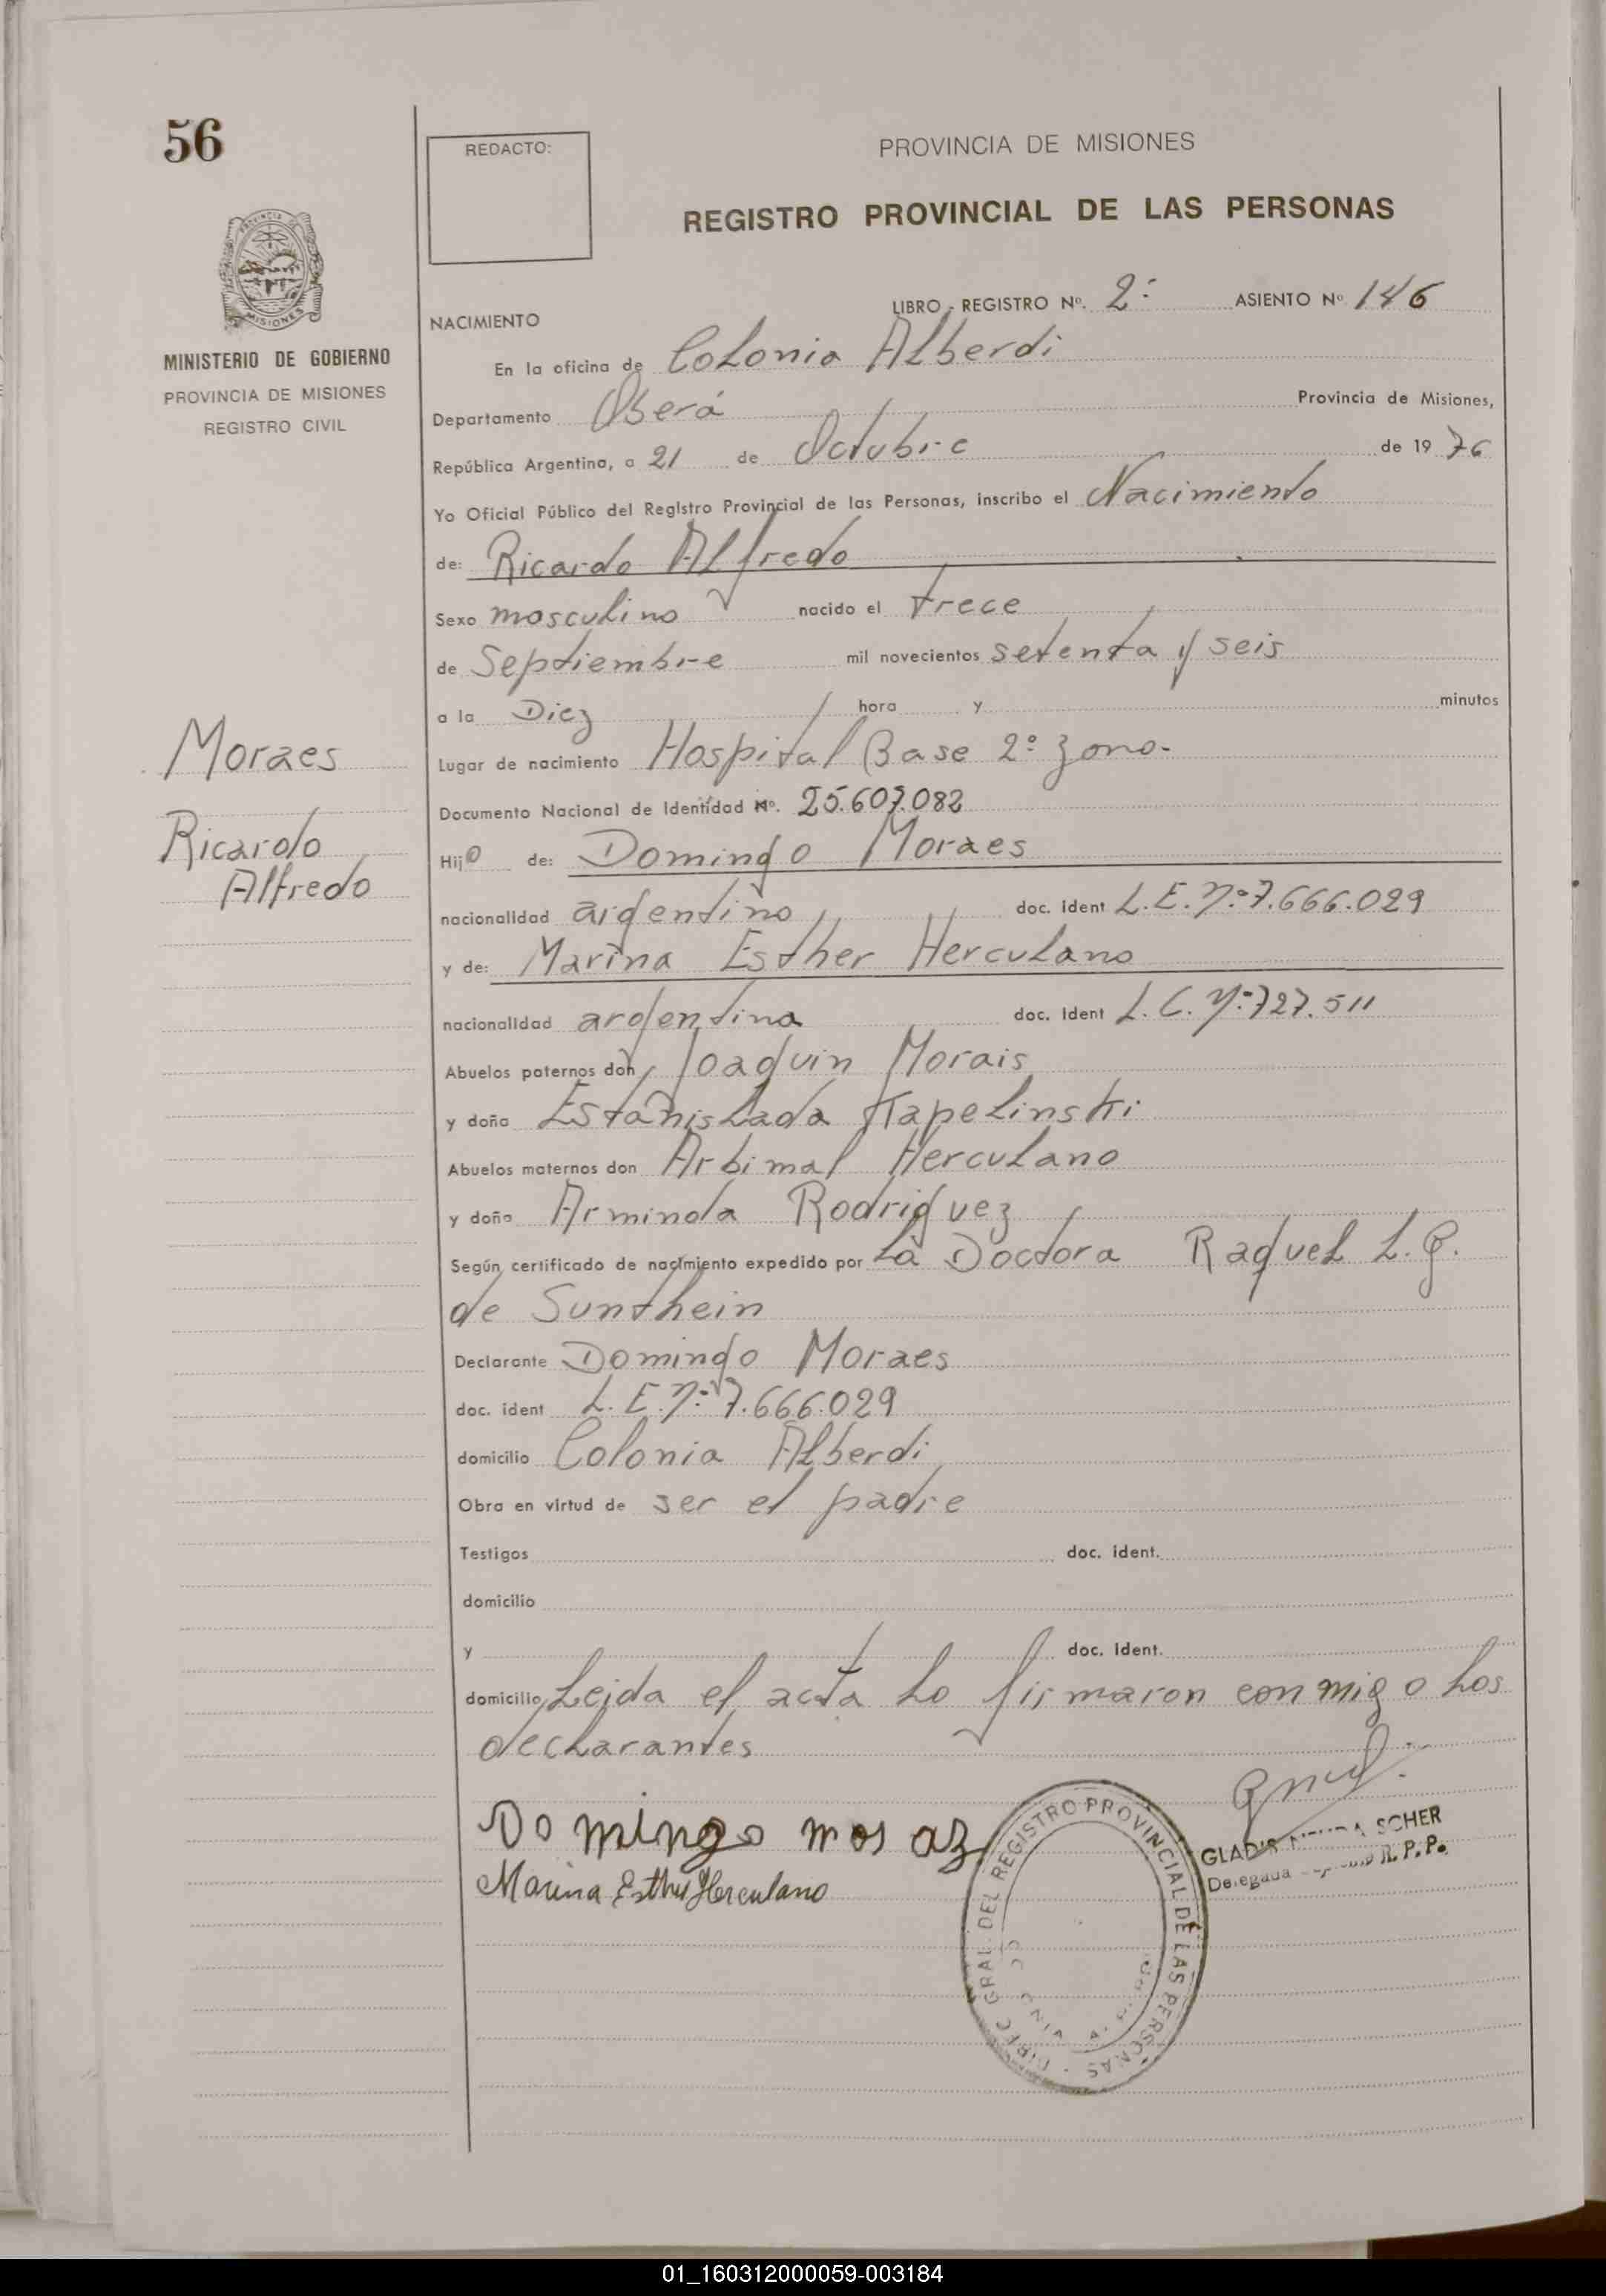 56
REDACTO:
PROVINCIA DE MISIONES
REGISTRO PROVINCIAL DE LAS PERSONAS
MINISTERIO DE GOBIERNO
PROVINCIA DE MISIONES
REGISTRO CIVIL
LIBRO - REGISTRO Nº. 2º ASIENTO Nº 146
NACIMIENTO
En la oficina de Colonia Alberdi
Departamento Oberá Provincia de Misiones,
República Argentina, a 21 de Octubre de 1976
Yo Oficial Público del Registro Provincial de las Personas, inscribo el Nacimiento
de: Ricardo Alfredo
Sexo masculino nacido el trece
de Septiembre mil novecientos setenta y seis
a la Diez hora y minutos
Moraes
Ricardo
Alfredo
Lugar de nacimiento Hospital Base 2º zona-
Documento Nacional de Identidad Nº. 25.607.082
Hijo de: Domingo Moraes
nacionalidad argentino doc. ident L.E. Nº 7.666.029
y de: Marina Esther Herculano
nacionalidad argentina doc. ident L.C. Nº 727.511
Abuelos paternos don Joaquin Morais
y doña Estanislada Kapelinski
Abuelos maternos don Arbimal Herculano
y doña Arminda Rodriguez
Según certificado de nacimiento expedido por La Doctora Raquel L. G.
de Sunthein
Declarante Domingo Moraes
doc. ident L.E. Nº 7.666.029
domicilio Colonia Alberdi
Obra en virtud de ser el padre
Testigos doc. ident.
domicilio
y doc. ident.
domicilio Leida el acta Lo firmaron conmigo Los
declarantes
Domingo
Marina Esther Herculano
GLADIS SCHER
Delegada R.P.P.
DIREC GRAL. DEL REGISTRO PROVINCIAL DE LAS PERSONAS
01_160312000059-003184